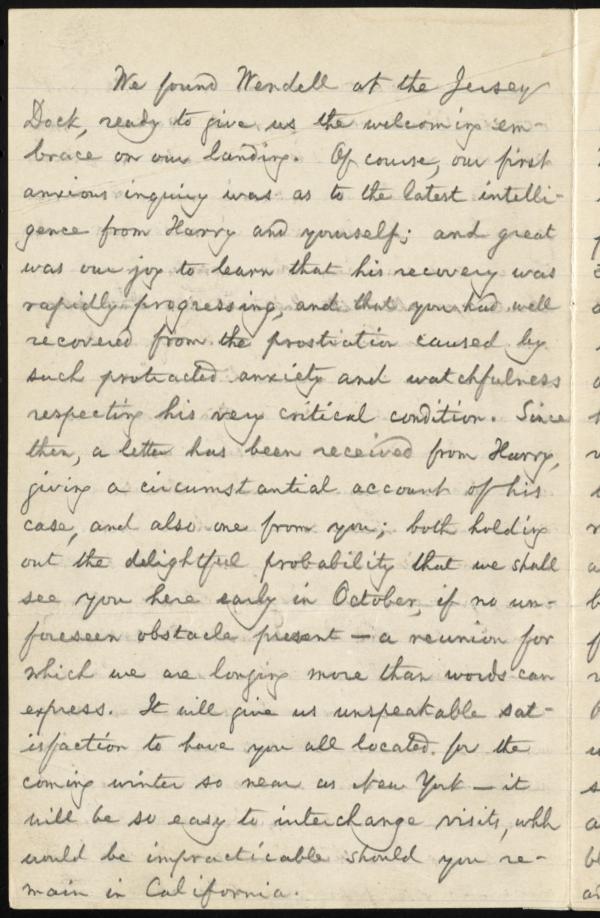 We found Wendell at the Jersey
Dock, ready to give us the welcoming em-
brace on our landing. Of course, our first
anxious inquiry was as to the latest intelli-
gence from Harry and yourself; and great
was our joy to learn that his recovery was
rapidly progressing, and that you had well
recovered from the prostration caused by
such protracted anxiety and watchfulness
respecting his very critical condition. Since
then, a letter has been received from Harry,
giving a circumstantial account of his
case, and also one from you; both holding
out the delightful probability that we shall
see you here early in October, if no un-
foreseen obstacle present — a reunion for
which we are longing more than words can
express. It will give us unspeakable sat-
isfaction to have you all located for the
coming winter so near as New York — it
will be so easy to interchange visits, whh
would be impracticable should you re-
main in California.